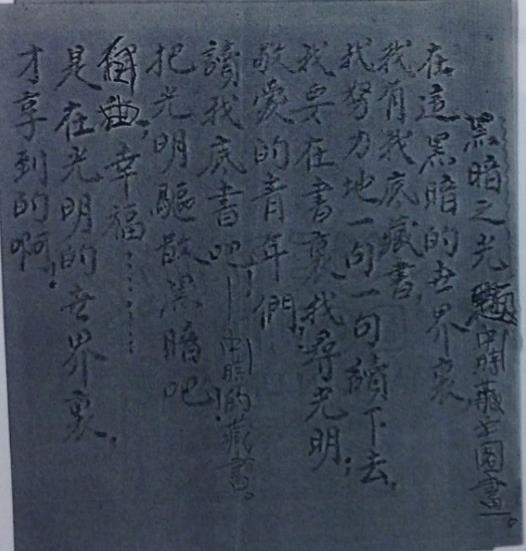 黑暗之光 題中時藏宇圖書。
在這黑暗的世界裏
我有我底藏書,
我努力地一句一句續下去,
我要在書裏我尋光明;
敬愛的青年們,
讀我底書吧!—中時的藏書。
把光明驅散黑暗吧!
自由,幸福……
是在光明的世界裏,
才享到的啊!